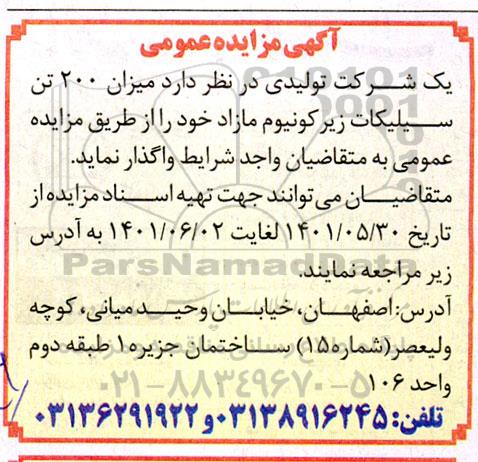 آگهی مزایده عمومی
یک شرکت تولیدی در نظر دارد میزان ۲۰۰ تن
سیلیکات زیرکونیوم مازاد خود را از طریق مزایده
عمومی به متقاضیان واجد شرایط واگذار نماید.
متقاضیان می‌توانند جهت تهیه اسناد مزایده از
تاریخ ۱۴۰۱/۰۵/۳۰ لغایت ۱۴۰۱/۰۶/۰۲ به آدرس
زیر مراجعه نمایند.
ParsNamadData
آدرس: اصفهان، خیابان وحید میانی، کوچه
ولیعصر (شماره۱۵) ساختمان جزیره۱ طبقه دوم
واحد ۱۰۶
۰۲۱-۸۸۳۴۹۶۷۰-۵
تلفن: ۰۳۱۳۸۹۱۶۲۴۵ و ۰۳۱۳۶۲۹۱۹۲۲